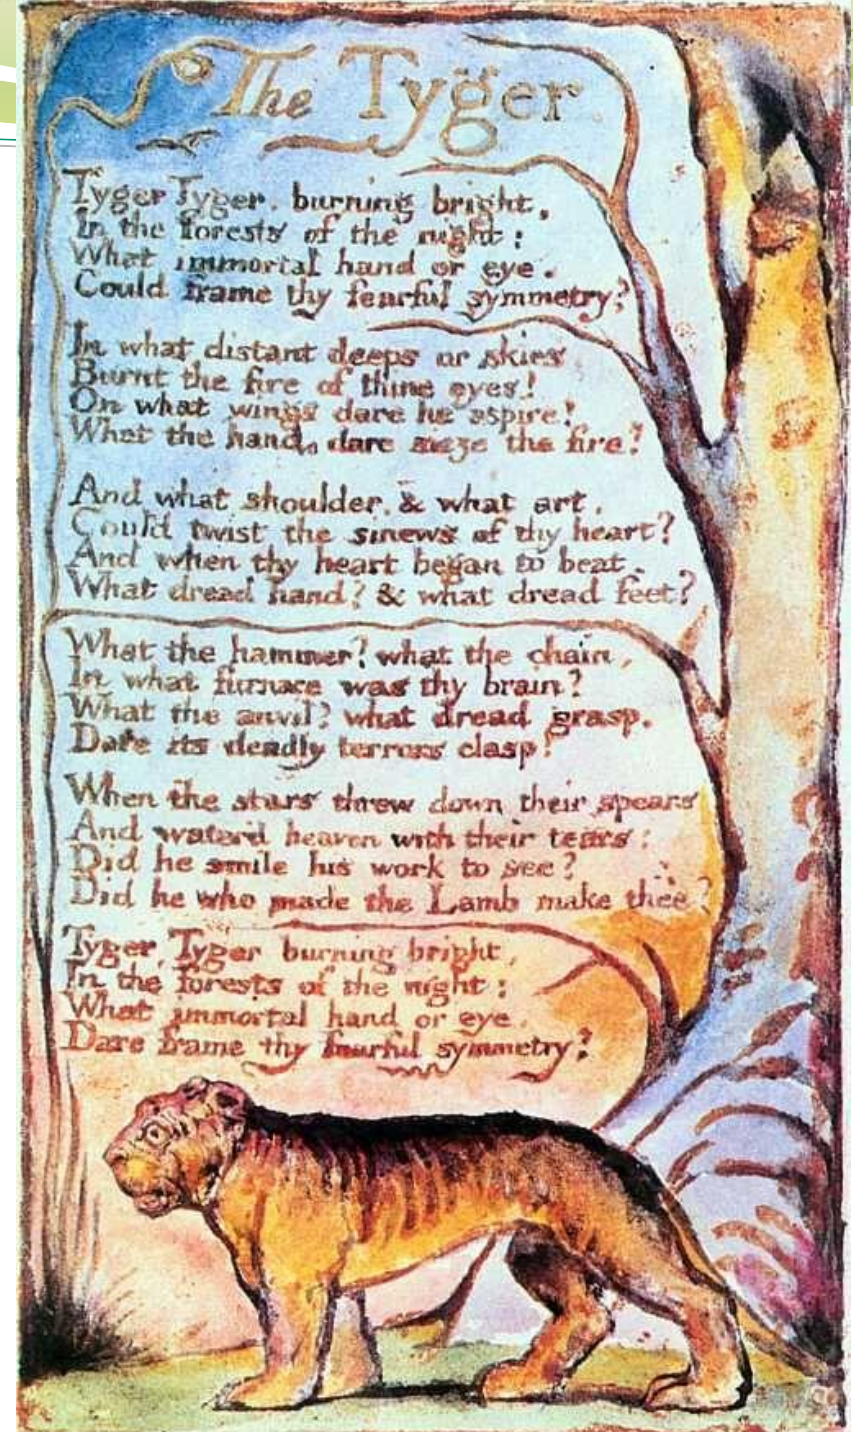 The Tyger
Tyger Tyger, burning bright,
In the forests of the night:
What immortal hand or eye,
Could frame thy fearful symmetry?
In what distant deeps or skies
Burnt the fire of thine eyes!
On what wings dare he aspire!
What the hand, dare sieze the fire?
And what shoulder, & what art,
Could twist the sinews of thy heart?
And when thy heart began to beat,
What dread hand? & what dread feet?
What the hammer? what the chain,
In what furnace was thy brain?
What the anvil? what dread grasp,
Dare its deadly terrors clasp!
When the stars threw down their spears
And water'd heaven with their tears:
Did he smile his work to see?
Did he who made the Lamb make thee?
Tyger, Tyger burning bright,
In the forests of the night:
What immortal hand or eye,
Dare frame thy fearful symmetry?